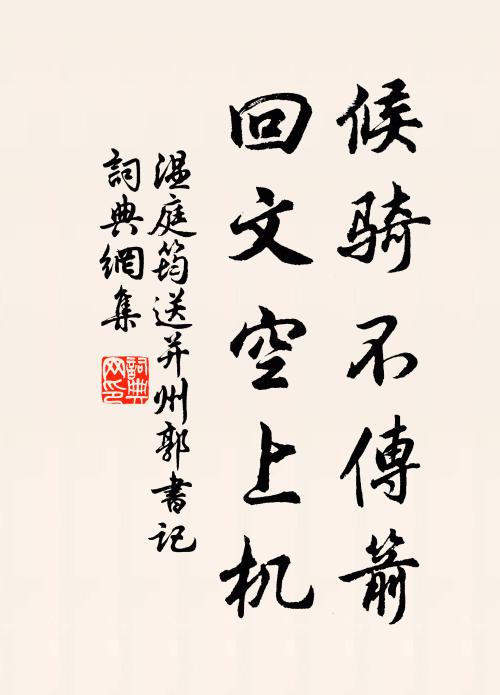 候骑不傳箭
回文空上机
温庭筠送并州郭書记
詞典網集
詞典网印